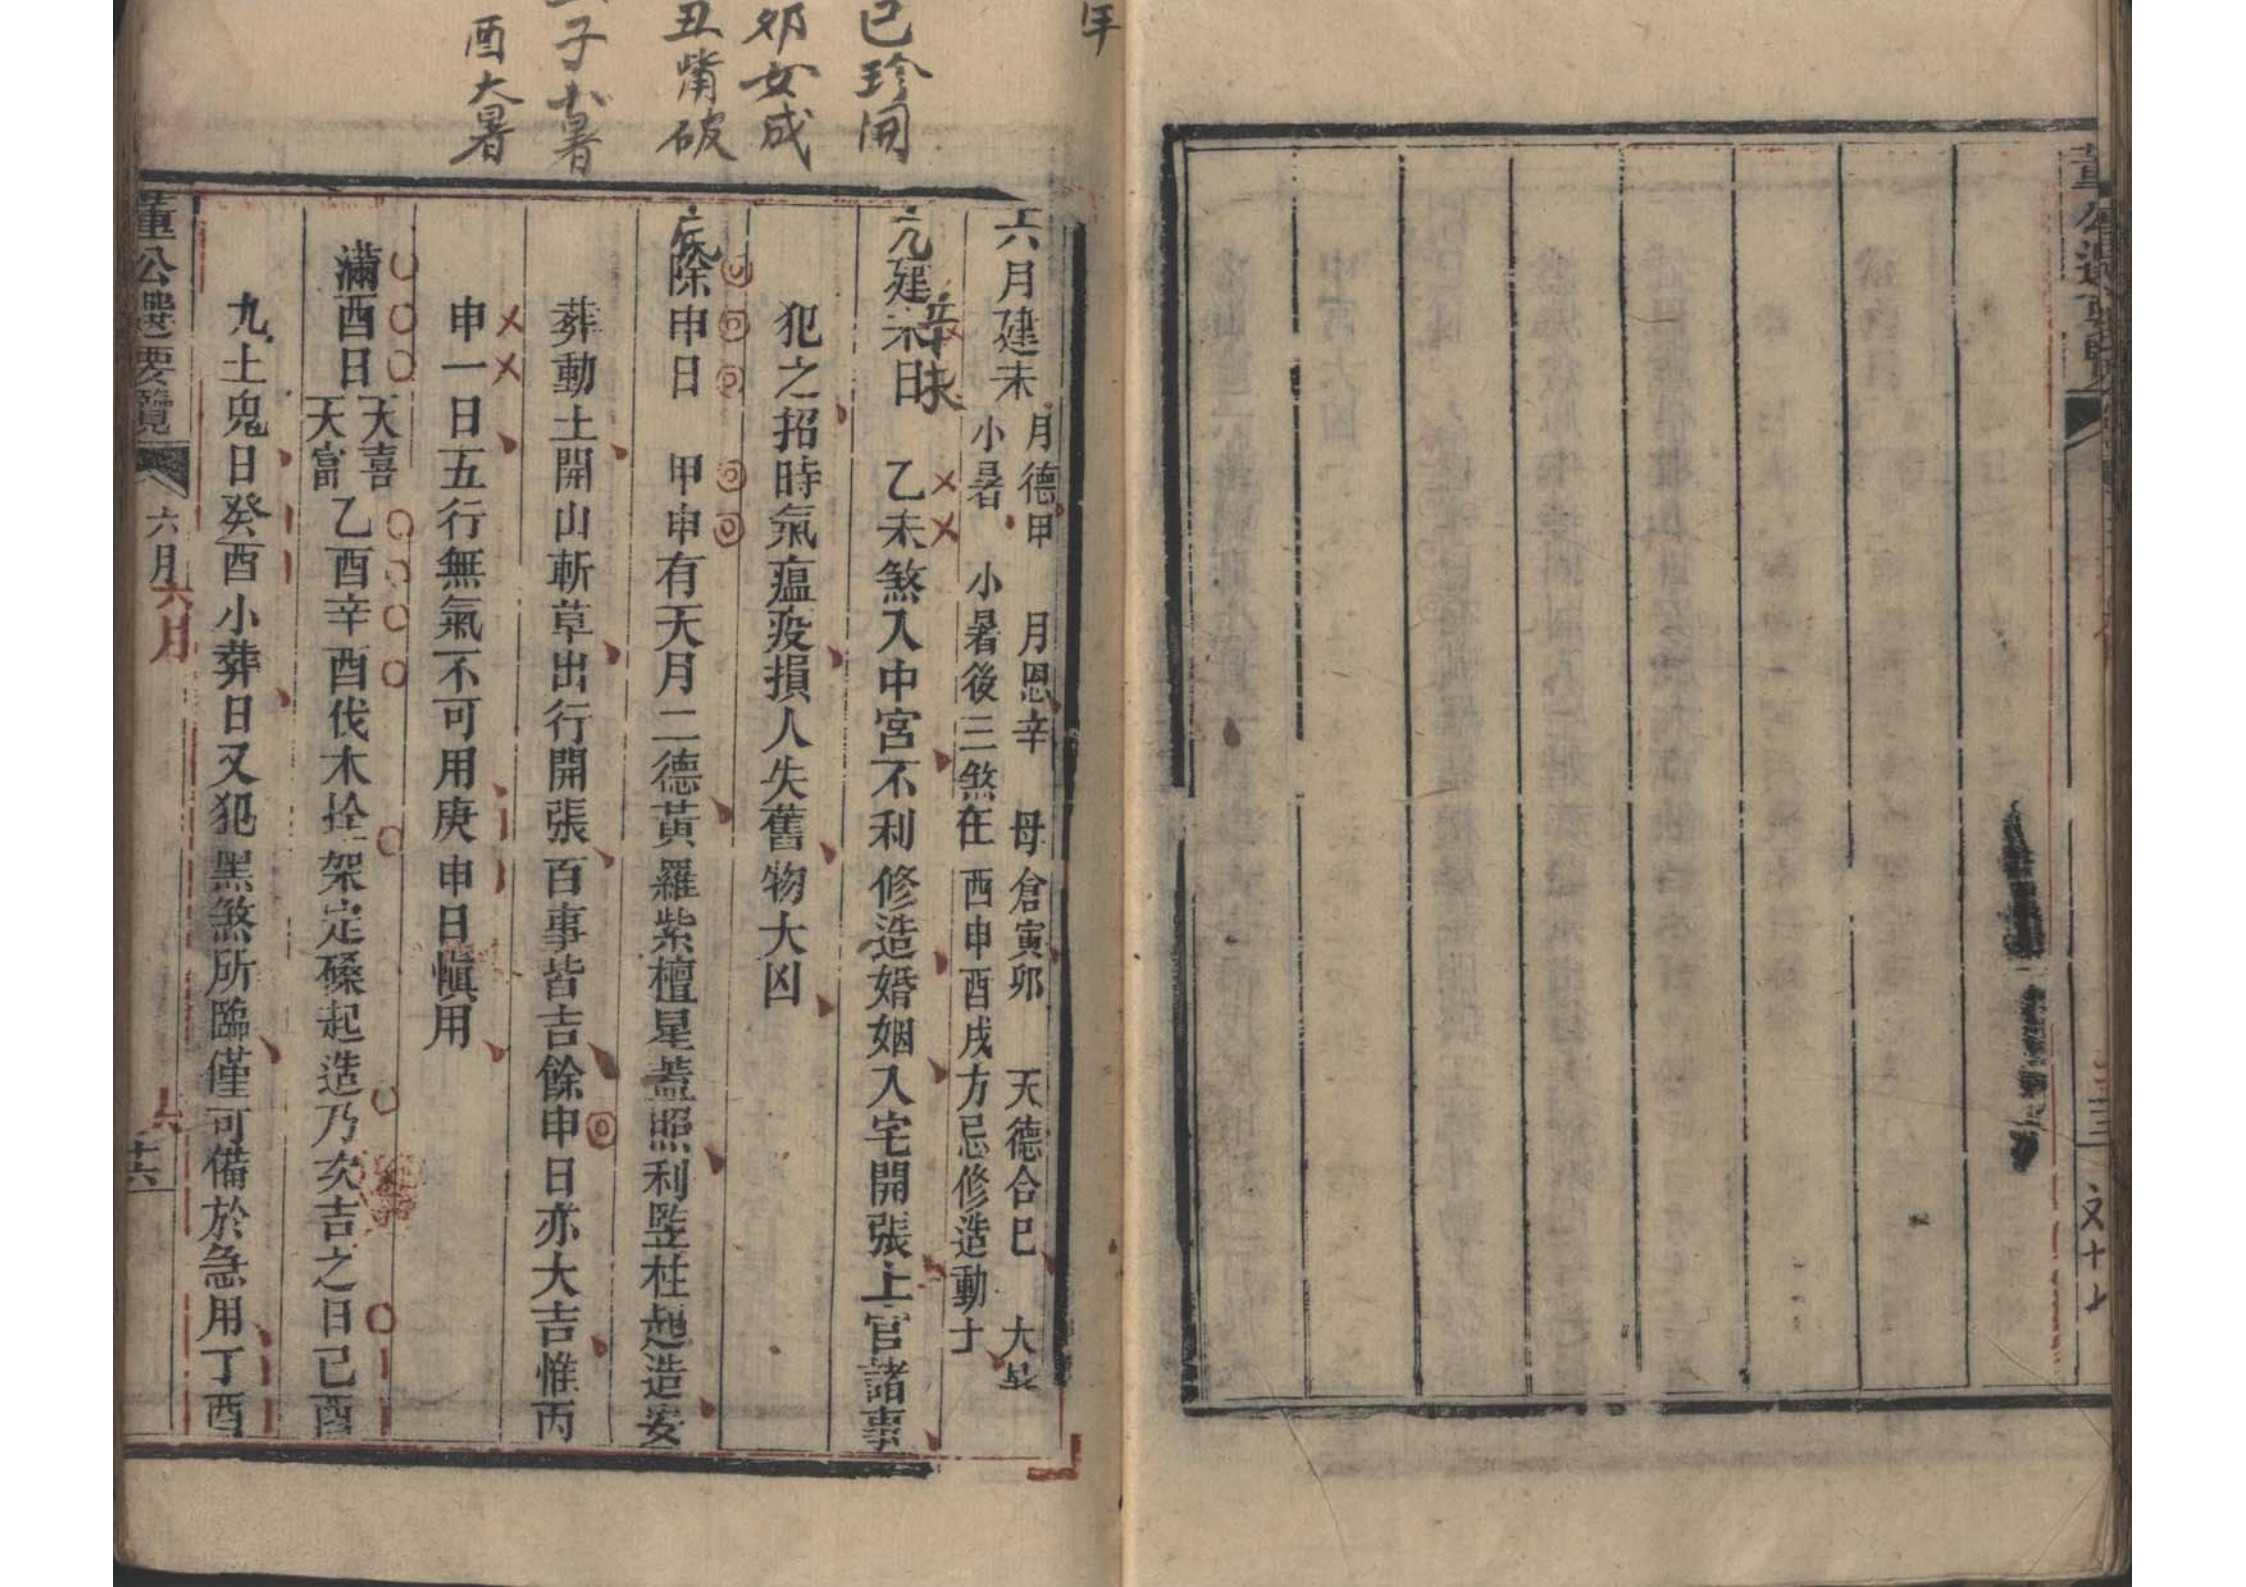 董公選要覽
文十七
年
巳珍開
邜女成
丑觜破
子小暑
酉大暑
六月建未
月德甲 月恩辛 母倉寅卯 天德合巳 大暑
小暑 小暑後三煞在西申酉戌方忌修造動土
亢建未日 辛未 乙未煞入中宮不利修造婚姻入宅開張上官諸事
犯之招時氣瘟疫損人失舊物大凶
底除申日 甲申有天月二德黃羅紫檀星蓋照利竪柱起造安
葬動土開山斬草出行開張百事皆吉餘申日亦大吉惟丙
申一日五行無氣不可用庚申日愼用
滿酉日 天喜 天富 乙酉辛酉伐木拴架定磉起造乃次吉之日已酉
九土鬼日癸酉小葬日又犯黑煞所臨僅可備於急用丁酉
董公選要覽
六月
六月
六
十六